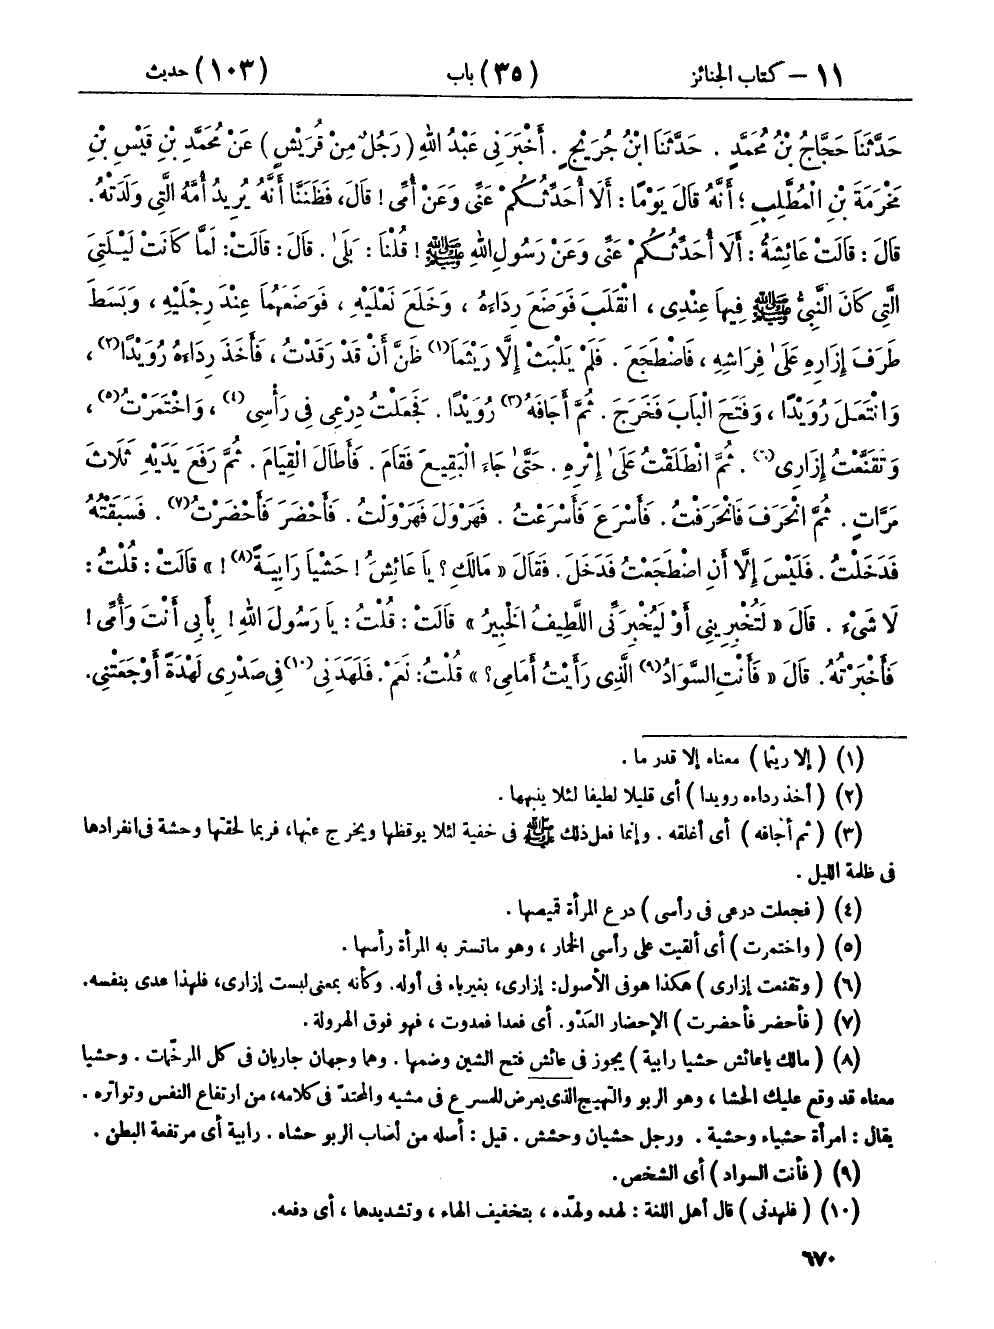 ١١ – كتاب الجنائز (٣٥) باب (١٠٣) حديث
حَدَّثَنَا حَجَّاجُ بْنُ مُحَمَّدٍ . حَدَّثَنَا ابْنُ جُرَيْجٍ . أَخْبَرَنِى عَبْدُ اللهِ ( رَجُلٌ مِنْ قُرَيْشٍ ) عَنْ مُحَمَّدِ بْنِ قَيْسِ بْنِ
مَخْرَمَةَ بْنِ الْمُطَّلِبِ ؛ أَنَّهُ قَالَ يَوْمًا : أَلَا أُحَدِّثُكُمْ عَنِّى وَعَنْ أُمِّى ! قَالَ، فَظَنَنَّا أَنَّهُ يُرِيدُ أُمَّهُ الَّتِى وَلَدَتْهُ .
قَالَ : قَالَتْ عَائِشَةُ : أَلَا أُحَدِّثُكُمْ عَنِّى وَعَنْ رَسُولِ اللهِ ﷺ ! قُلْنَا : بَلَىٰ . قَالَ : قَالَتْ: لَمَّا كَانَتْ لَيْلَتِىَ
الَّتِى كَانَ النَّبِىُّ ﷺ فِيهَا عِنْدِى ، انْقَلَبَ فَوَضَعَ رِدَاءَهُ ، وَخَلَعَ نَعْلَيْهِ ، فَوَضَعَهُمَا عِنْدَ رِجْلَيْهِ ، وَبَسَطَ
طَرَفَ إِزَارِهِ عَلَىٰ فِرَاشِهِ ، فَاضْطَجَعَ . فَلَمْ يَلْبَثْ إِلَّا رَيْثَمَا(١) ظَنَّ أَنْ قَدْ رَقَدْتُ ، فَأَخَذَ رِدَاءَهُ رُوَيْدًا(٢) ،
وَانْتَعَلَ رُوَيْدًا ، وَفَتَحَ الْبَابَ فَخَرَجَ . ثُمَّ أَجَافَهُ(٣) رُوَيْدًا . فَجَعَلْتُ دِرْعِى فِى رَأْسِى(٤) ، وَاخْتَمَرْتُ(٥) ،
وَتَقَنَّعْتُ إِزَارِى(٦) . ثُمَّ انْطَلَقْتُ عَلَىٰ إِثْرِهِ . حَتَّىٰ جَاءَ الْبَقِيعَ فَقَامَ . فَأَطَالَ الْقِيَامَ . ثُمَّ رَفَعَ يَدَيْهِ ثَلَاثَ
مَرَّاتٍ . ثُمَّ انْحَرَفَ فَانْحَرَفْتُ . فَأَسْرَعَ فَأَسْرَعْتُ . فَهَرْوَلَ فَهَرْوَلْتُ . فَأَحْضَرَ فَأَحْضَرْتُ(٧) . فَسَبَقْتُهُ
فَدَخَلْتُ . فَلَيْسَ إِلَّا أَنِ اضْطَجَعْتُ فَدَخَلَ . فَقَالَ « مَالَكِ ؟ يَا عَائِشُ ! حَشْيَا رَابِيَةً(٨) ! » قَالَتْ : قُلْتُ :
لَا شَىْءَ . قَالَ « لَتُخْبِرِينِى أَوْ لَيُخْبِرَنِّى اللَّطِيفُ الْخَبِيرُ » قَالَتْ : قُلْتُ : يَا رَسُولَ اللهِ ! بِأَبِى أَنْتَ وَأُمِّى !
فَأَخْبَرْتُهُ. قَالَ « فَأَنْتِ السَّوَادُ(٩) الَّذِى رَأَيْتُ أَمَامِى؟ » قُلْتُ : نَعَمْ . فَلَهَدَنِى(١٠) فِى صَدْرِى لَهْدَةً أَوْجَعَتْنِى.
(١) ( إلا ريثما ) معناه إلا قدر ما .
(٢) ( أخذ رداءه رويدا ) أى قليلا لطيفا لئلا ينبهها .
(٣) ( ثم أجافه ) أى أغلقه . وإنما فعل ذلك ﷺ فى خفية لئلا يوقظها ويخرج عنها، فربما لحقتها وحشة فى انفرادها
فى ظلمة الليل .
(٤) ( فجعلت درعى فى رأسى ) درع المرأة قميصها .
(٥) ( واختمرت ) أى ألقيت على رأسى الخمار ، وهو ماتستر به المرأة رأسها .
(٦) ( وتقنعت إزارى ) هكذا هو فى الأصول: إزارى، بغير باء فى أوله. وكأنه بمعنى لبست إزارى، فلهذا عدى بنفسه.
(٧) ( فأحضر فأحضرت ) الإحضار العَدْو. أى فعدا فعدوت ، فهو فوق الهرولة .
(٨) ( مالك ياعائش حشيا رابية ) يجوز فى عائش فتح الشين وضمها . وهما وجهان جاريان فى كل المرخّمات . وحشيا
معناه قد وقع عليك الحشا ، وهو الربو والتهيج الذى يعرض للمسرع فى مشيه والمحتدّ فى كلامه، من ارتفاع النفس وتواتره .
يقال : امرأة حشياء وحشية . ورجل حشيان وحشش . قيل : أصله من أصاب الربو حشاه . رابية أى مرتفعة البطن .
(٩) ( فأنت السواد ) أى الشخص .
(١٠) ( فلهدنى ) قال أهل اللغة : لهده ولهّده ، بتخفيف الهاء ، وتشديدها ، أى دفعه.
٦٧٠